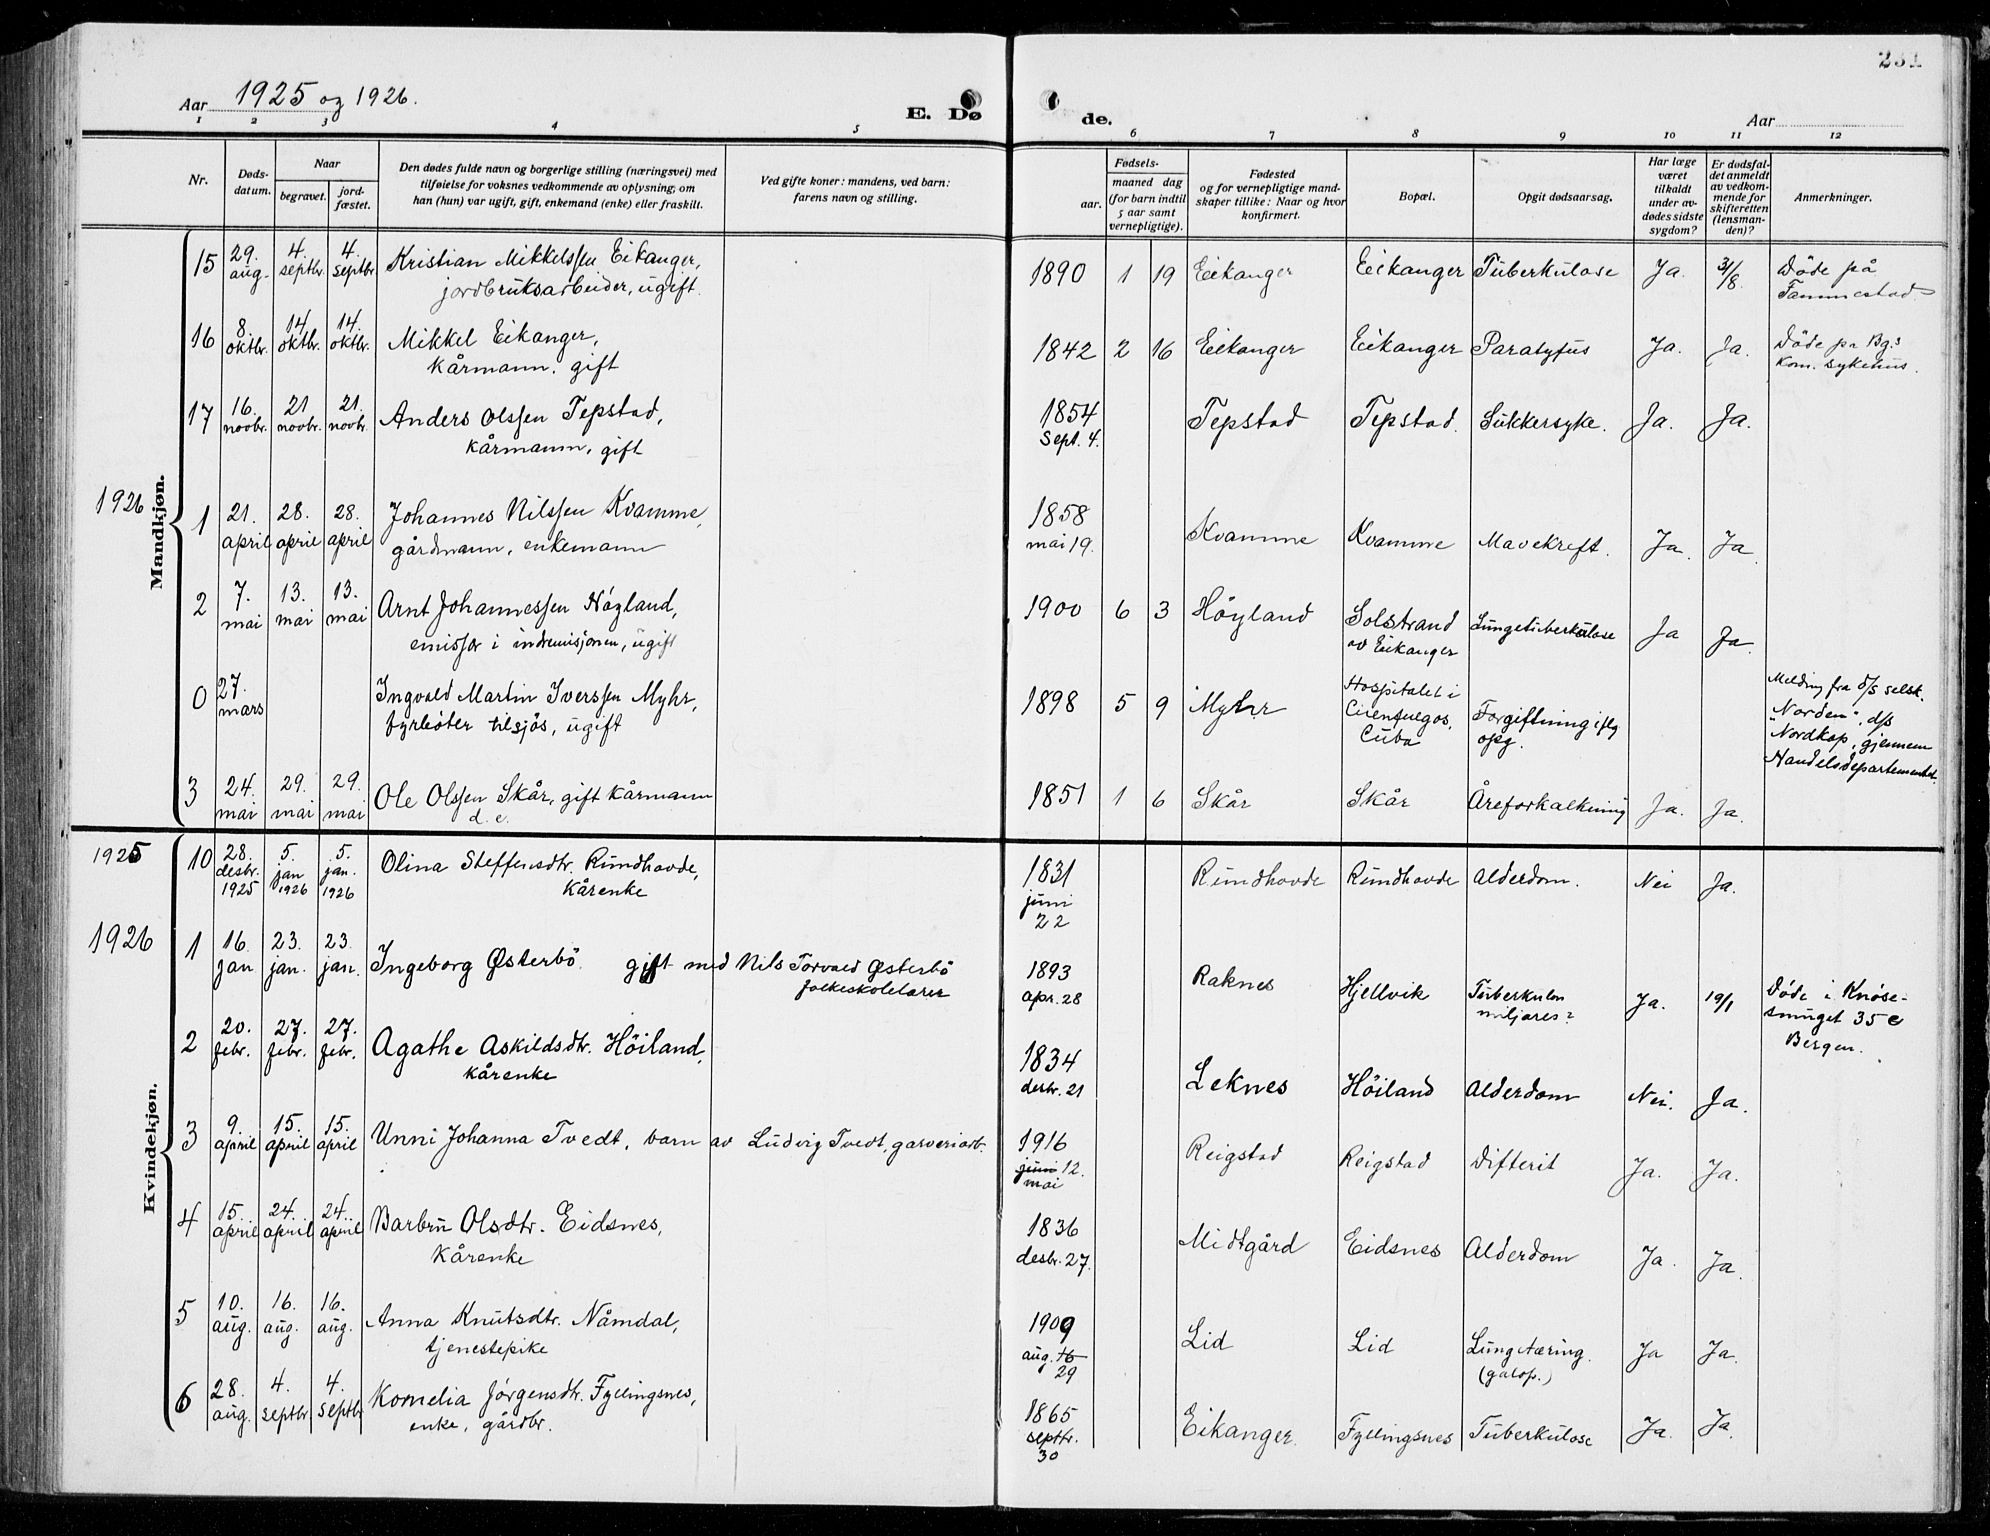 231
Aar 1925 og 1926.
E. Dø de.
Aar
1 2 3 4 5 6 7 8 9 10 11 12
Nr.
Døds-
datum.
Naar
begravet.
jord-
fæstet.
Den dødes fulde navn og borgerlige stilling (næringsvei) med
tilføielse for voksnes vedkommende av oplysning, om
han (hun) var ugift, gift, enkemand (enke) eller fraskilt.
Ved gifte koner: mandens, ved barn:
farens navn og stilling.
Fødsels-
aar.
maaned dag
(for barn indtil
5 aar samt
vernepligtige).
Fødested
og for vernepligtige mand-
skaper tillike: Naar og hvor
konfirmert.
Bopæl.
Opgit dødsaarsag.
Har læge
været
tilkaldt
under av-
dødes sidste
sygdom?
Er dødsfal-
det anmeldt
av vedkom-
mende for
skifteretten
(lensman-
den)?
Anmerkninger.
Mandkjøn.
15 29. aug. 4. septbr. 4. septbr. Kristian Mikkelssen Eikanger,
jordbruksarbeider, ugift.
1890 1 19 Eikanger Eikanger Tuberkulose Ja. 31/8. Döde på
Tammestad.
16 8. oktbr. 14 oktbr. 14. oktbr. Mikkel Eikanger,
kårmann. gift
1842 2 16 Eikanger Eikanger Paratyfus Ja. Ja. Döde pa Bg.s
kom. sykehus.
17 16. novbr. 21 novbr. 21. novbr. Anders Olssen Tepstad,
kårmann, gift
1854
Sept. 4.
Tepstad Tepstad. Sukkersyke. Ja. Ja.
1926
1 21. april 28. april 28. april Johannes Nilssen Kvamme,
gårdmann, enkemann
1858
mai 19.
Kvamme Kvamme Mavekreft. Ja. Ja.
2 7. mai 13. mai 13. mai Arnt Johannessen Höyland,
emissær i indremisjonen, ugift
1900 6 3 Höyland Solstrand
av Eikanger
Lungetuberkulose Ja Ja.
0 27. mars Ingvald Martin Iverssen Myhr,
fyrböter tilsjös, ugift
1898 5 9 Myhr Hospitalet i
Cienfuegos,
Cuba
Forgiftning iflg
opg.
Melding fra d/s selsk.
"Norden", d/s
"Nordkap, gjennem
Handelsdepartementet.
3 24. mai 29. mai 29. mai Ole Olssen Skår, gift kårmann
d. e.
1851 1 6 Skår Skår Åreforkalkning Ja. Ja.
Kvindekjøn.
1925
10 28. desbr. 1925 5. jan 1926 5. jan. 1926 Olina Steffensdtr. Rundhovde,
kårenke
1831
juni
22
Rundhovde Rundhovde Alderdom. Nei Ja.
1926
1 16. jan 23. jan. 23. jan. Ingeborg Østerbö. gift med Nils Torvald Østerbö
folkeskolelærer
1893
apr. 28
Raknes Hjellvik Tuberkulos
miljares? Ja. 19/1 Döde i Knöse-
smuget 35 c
Bergen.
2 20. febr. 27. febr. 27. febr. Agathe Askildsdtr. Höiland,
kårenke
1834
desbr. 21
Leknes Höiland Alderdom Nei. Ja.
3 9. april 15. april 15. april Unni Johanna Tvedt, barn av Ludvig Tvedt, garveriarb.
1916
juni 12.
mai
Reigstad Reigstad Difterit Ja. Ja.
4 15. april 24. april 24. april Barbru Olsdtr. Eidsnes,
Kårenke
1836
desbr. 27.
Midtgård Eidsnes Alderdom Ja. Ja.
5 10. aug. 16. aug. 16. aug. Anna Knutsdtr. Nåmdal,
tjenestepike
1909
aug. 16
29
Lid Lid Lungetæring.
(galop.) Ja Ja.
6 28. aug. 4. septbr 4. septbr Kornelia Jörgensdtr. Fyllingsnes,
enke, gårdbr.
1865
septbr.
30
Eikanger. Fyllingsnes Tuberkulose Ja. Ja.